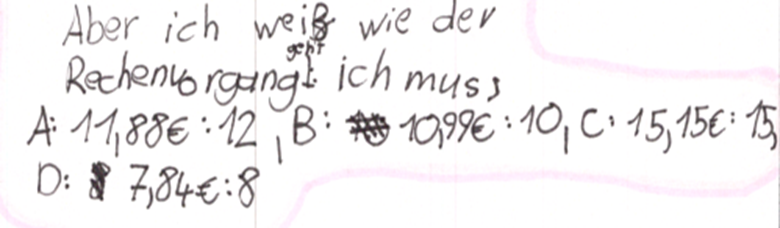 Aber ich weiß wie der
Rechenvorgang geht: ich muss
A: 11,88€ : 12, B: 10,99€ : 10, C: 15,15€ : 15,
D: 7,84€ : 8